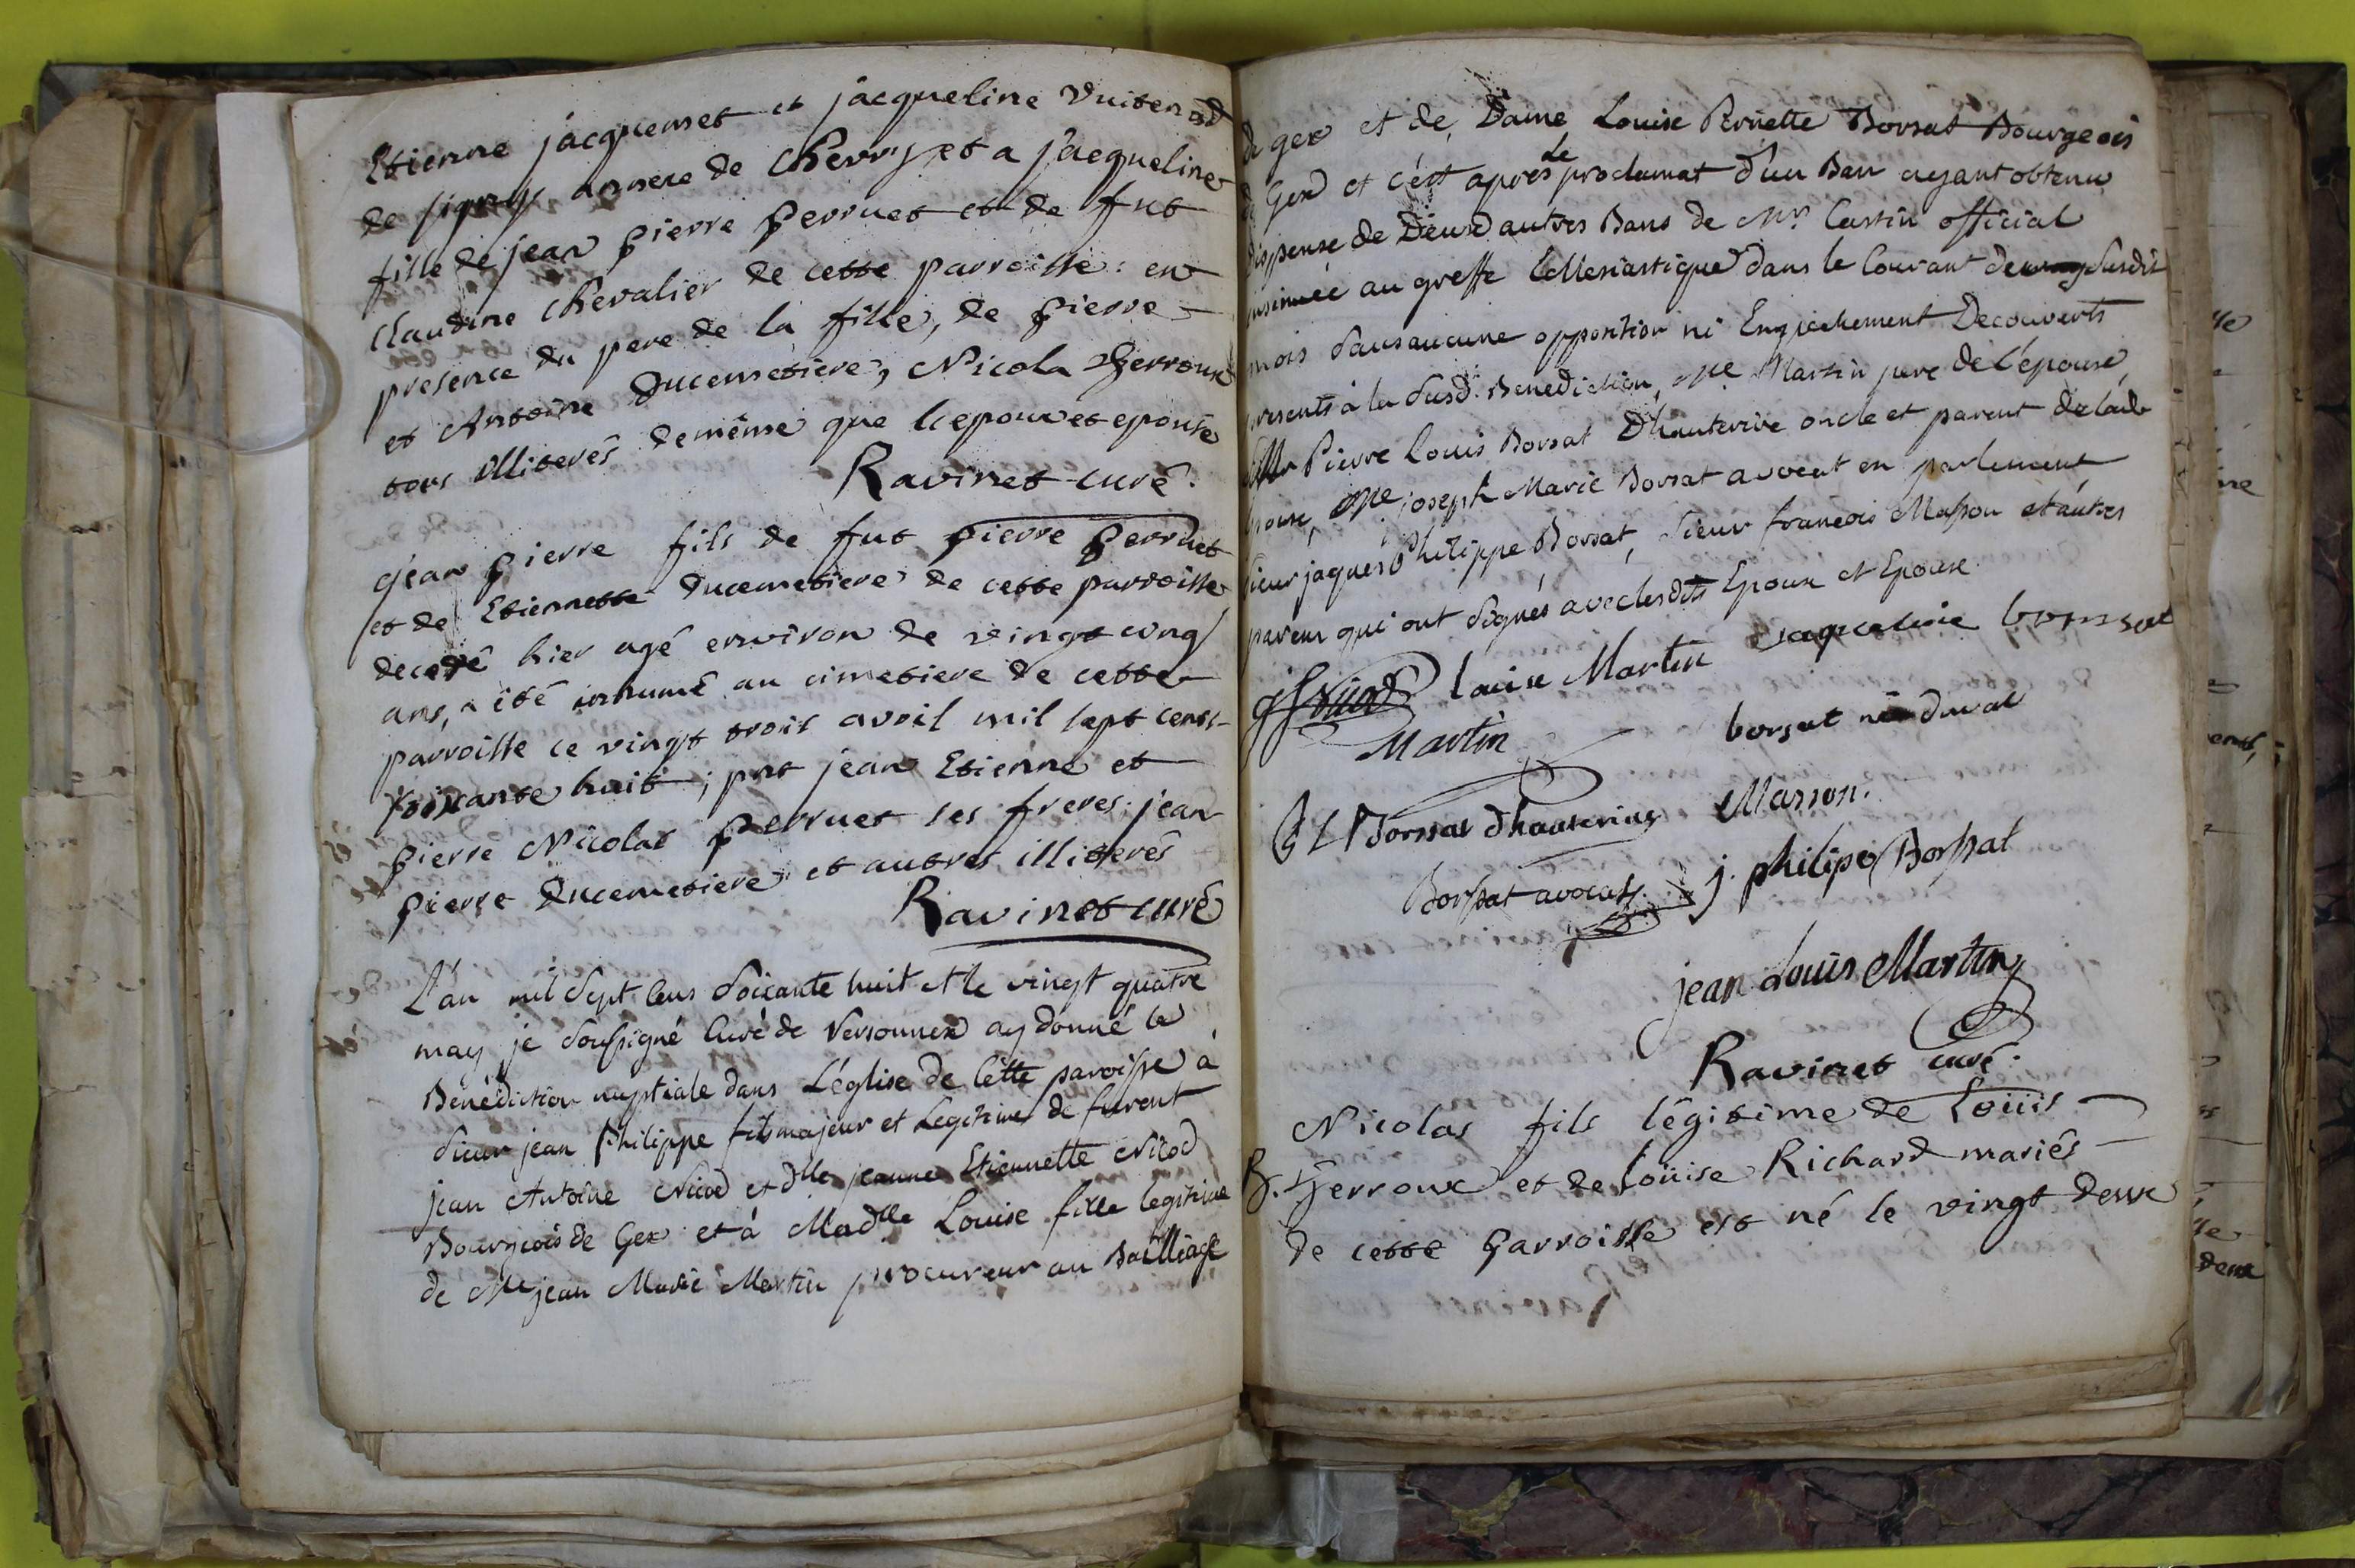 Etienne jacquemet et jacqueline Vuitenod
de signy annexe de Chevry et a jacqueline
fille de jean pierre perruet et de fut
Claudine Chevalier de cette parroisse: en
presence du pere de la fille, de pierre
et Antoine Ducemetiere, Nicola Gerroux
tous illiterés demême que lepoux et epouse
Ravinet curé.
jean pierre fils de fut pierre perruet
et de Etiennette Ducemetiere de cette parroisse
decedé hier agé environ de vingt cinq
ans, a été inhumé au cimetiere de cette
parroisse ce vingt trois avril mil sept cent
soixante huit; pnt jean Etienne et
pierre Nicolas perruet ses freres jean
pierre Ducemetiere et autres illiterés
Ravinet curé
L'an mil Sept Cens Soixante huit et le vingt quatre
may je Soussigné Curé de Versonnex ay donné la
Bénédiction nuptiale dans L'église de Cette paroisse à
Sieur jean Philippe fils majeur et Legitime de furent
jean Antoine Nicod et dlle jeanne Etiennette Nicod
Bourgeois de Gex et à Madlle Louise fille legitime
de Me jean Marie Martin procureur au Bailliage
de gex et de Dame Louise Pernette Borsat Bourgeois
de Gex et c'est apres le proclamat d'un Ban ayant obtenu
dispense de Deux autres Bans de Mr. Castin official
insinuée au greffe Ecclesiastique dans le Courant de susdit
mois Sans aucune opposition ni Empechement Decouverts
presents à la Susd. Benediction, Me Martin pere de l'épouse,
Pierre Louis Borsat D'hauterive oncle et parent de lade
Epouse, Me joseph Marie Borsat avocat en parlement
Sieur jaques Philippe Borsat, Sieur francois Masson et autres
parens qui ont Signés avec lesdits Epoux et Epouse.
Nicod Louise Martin jaqueline borssat
Martin borsat née duval
P L Borssat dhauterive Masson.
Borssat avocat j. philipe Borssat
jean Louis Martin
Ravinet curé.
Nicolas fils légitime de Loüis
B. Gerroux et de Loüise Richard mariés
de cette Parroisse est né le vingt deux